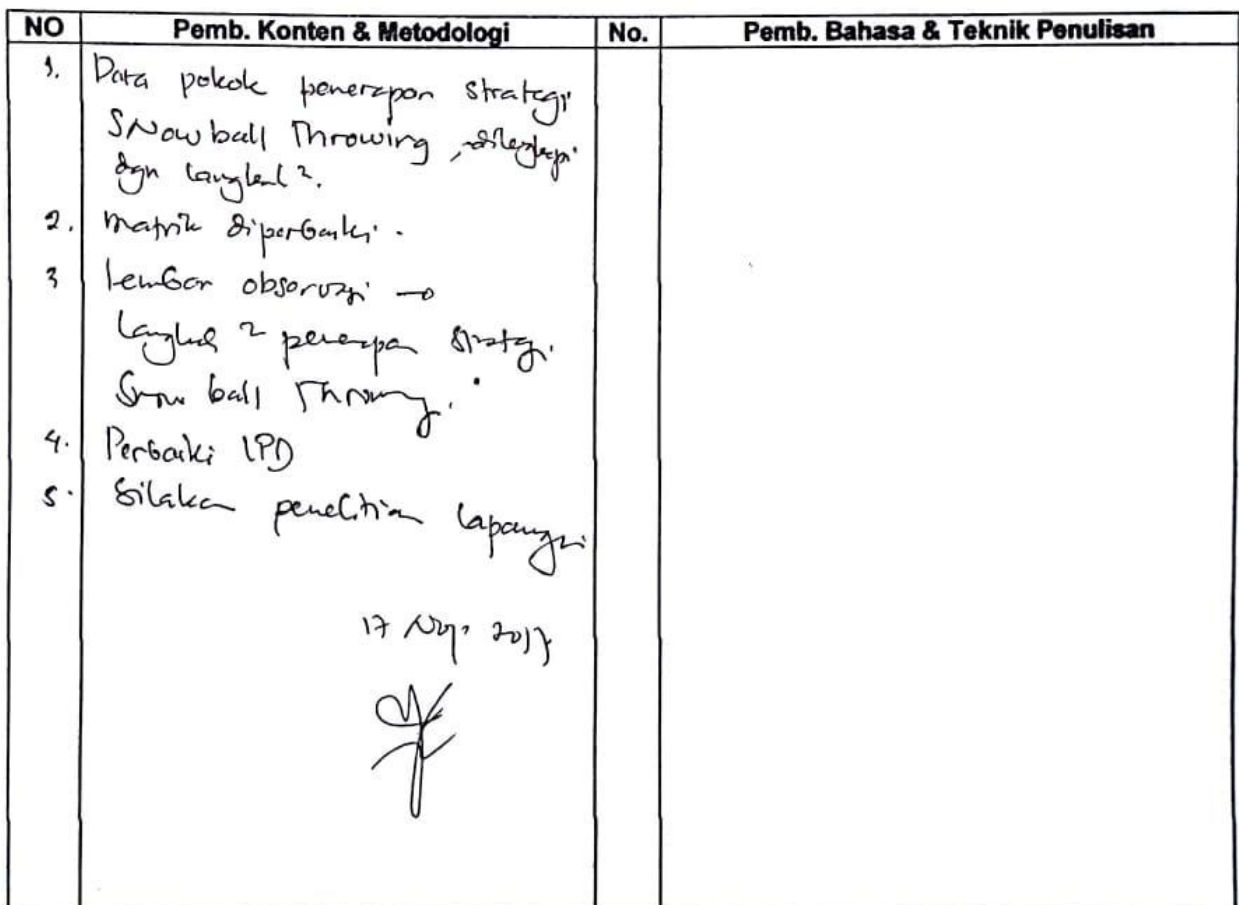 NO Pemb. Konten & Metodologi No. Pemb. Bahasa & Teknik Penulisan
1. Data pokok penerapan strategi
SNow ball Throwing, dilengkapi
dgn langkah².
2. Matrik diperbaiki.
3 lembar observasi →
langkah ² penerapan strategi
Snow ball Throwing.
4. Perbaiki LPD
5. Silakan penelitian lapangan
17 Nop. 2017